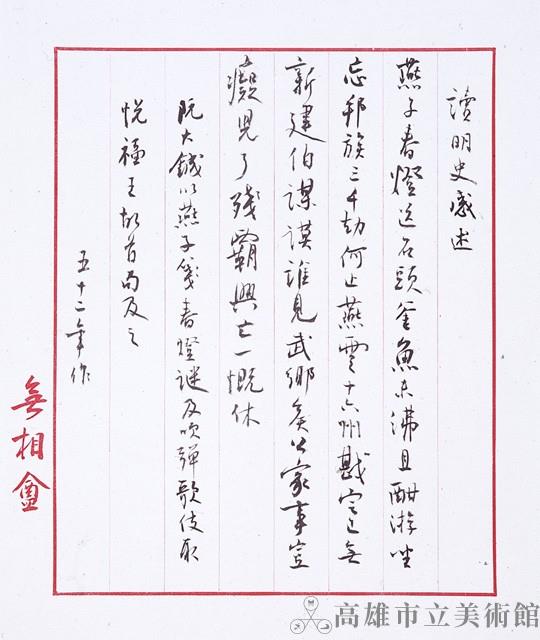 讀明史感述
燕子春燈送石頭釜魚未沸且酣游坐
忘邦族三千劫何止燕雲十六州戡定已無
新建伯謀謨誰見武鄉矦公家事豈
癡兒了殘霸興亡一慨休
阮大鋮以燕子箋春燈謎及吹彈歌伎取
悅福王故首句及之
五十二年作
無相盦
高雄市立美術館